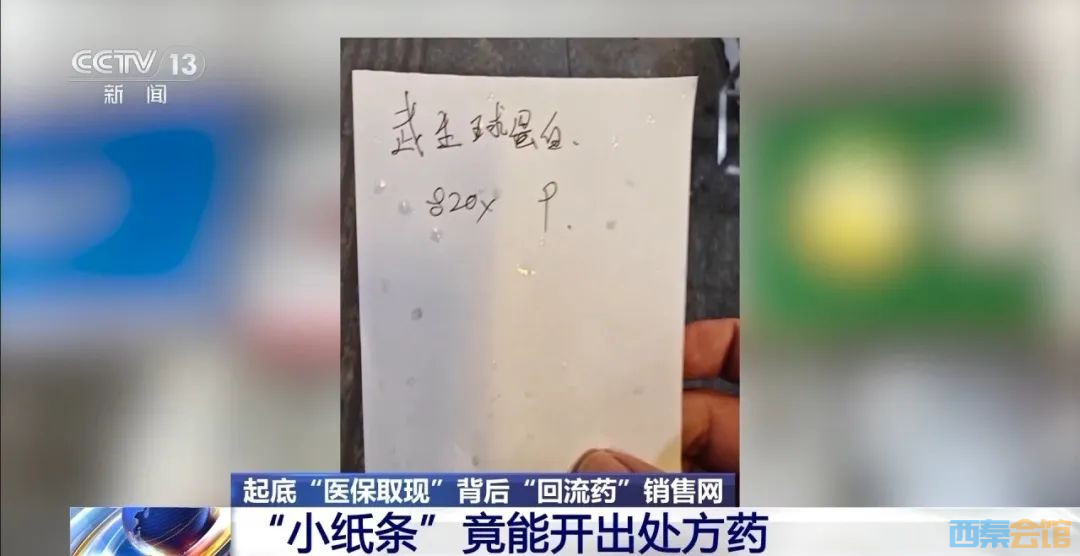 CCTV 13
新闻
武生球蛋白.
820x P.
起底“医保取现”背后“回流药”销售网
“小纸条”竟能开出处方药
西秦会馆